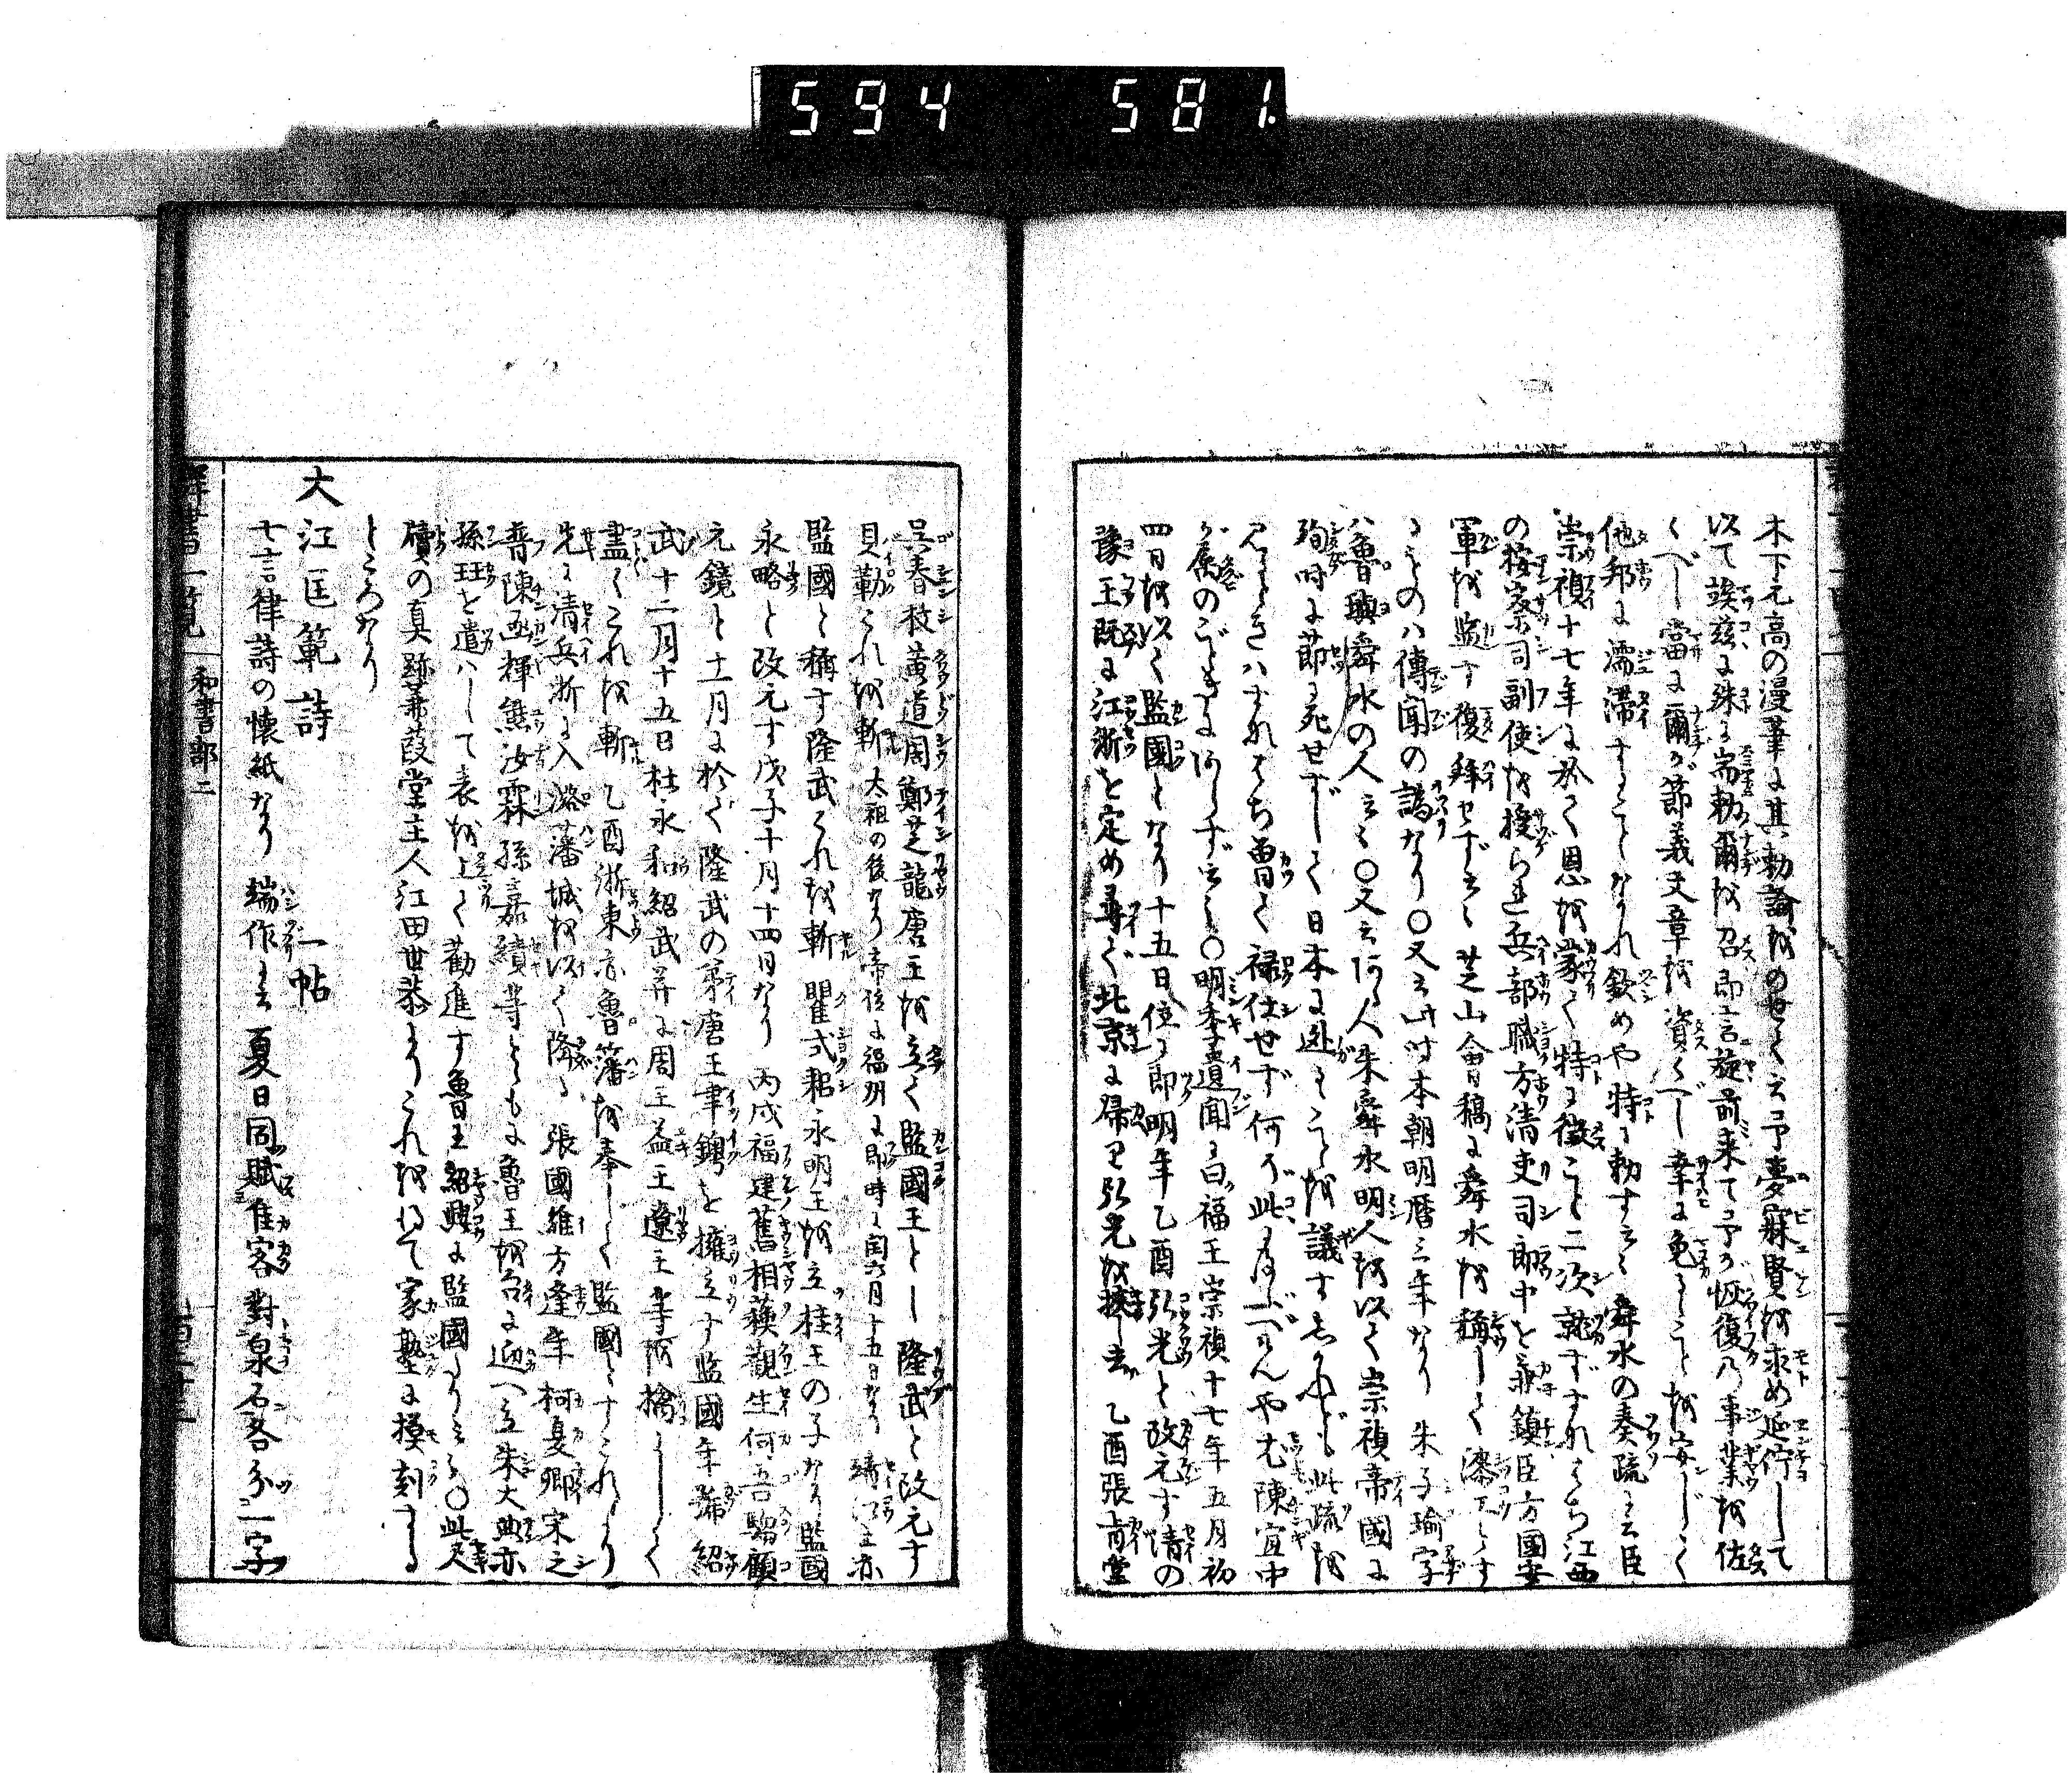 594 581
木下元高の漫筆に其勅諭をのせて云予夢寐賢を求め延佇して
以て誒茲に殊に耑勅爾を召即言旋前来て予が恢復乃事業を佐
くべし當に爾が節義文章を資くべし幸に免るゝことを安じて
他邦に濡滞することなかれ欽めや特に勅すと云々舜水の奏疏に云臣
崇禎十七年に於て恩を蒙て特に徴こと二次就ずすなはち江西
の按察司副使を授られ兵部職方清吏司郎中を兼鎮臣方國安
軍を監す復拝せずと云々芝山會稿に舜水を稱して漆
とものハ傳聞の譌なり○又云此时本朝明暦三年なり朱子瑜字
ハ魯璵舜水の人云々○又云何人朱舜水明人を以て崇禎帝國に
殉时に節に死せずして日本に迯ることを議す此疏を
みるときハすなはち曽て禄仕せず何ぞ此に及ばんや尤陳宜中
が属のごときにあらず云々○明季遺聞に曰福王崇禎十七年五月初
四日を以て監國となり十五日位に即明年乙酉弘光と改元す清の
豫王既に江浙を定め尋で北京に帰る弘光を挟し去 乙酉張肯堂
呉春枝黄道周鄭芝龍唐王を立て監國王とし隆武と改元す
貝勒これを斬 太祖の後なり帝位に福州に即時に閏六月十五日なり 靖江王亦
監國と稱す隆武これを斬瞿式耜永明王を立桂王の子なり監國
永略と改元す戊子十月十四日なり 丙戌福建舊相蘓觀生何吾騶顧
元鏡と十一月に於て隆武の弟唐王聿鐭を擁立す監國年號紹
武十二月十五日杜永和紹武并に周王益王遼王等を擒にして
盡くこれを斬 乙酉浙東亦魯藩を奉じて監國とすこれより
先に清兵浙に入潞藩城を以て降る張國維方逢年柯夏卿宋之
普陳函輝熊汝霖孫嘉績等ともに魯王を台に迎へ立朱大典亦
孫珏を遣ハして表を上て勸進す魯王紹興に監國たりと云々○此尺
牘の真跡蒹葭堂主人江田世恭よりこれを得て家塾に摸刻する
ところなり
大江匡範詩 一帖
七言律詩の懷紙なり端作に云夏日同賦隹客對泉石各分一字
群書一覧 和書部二